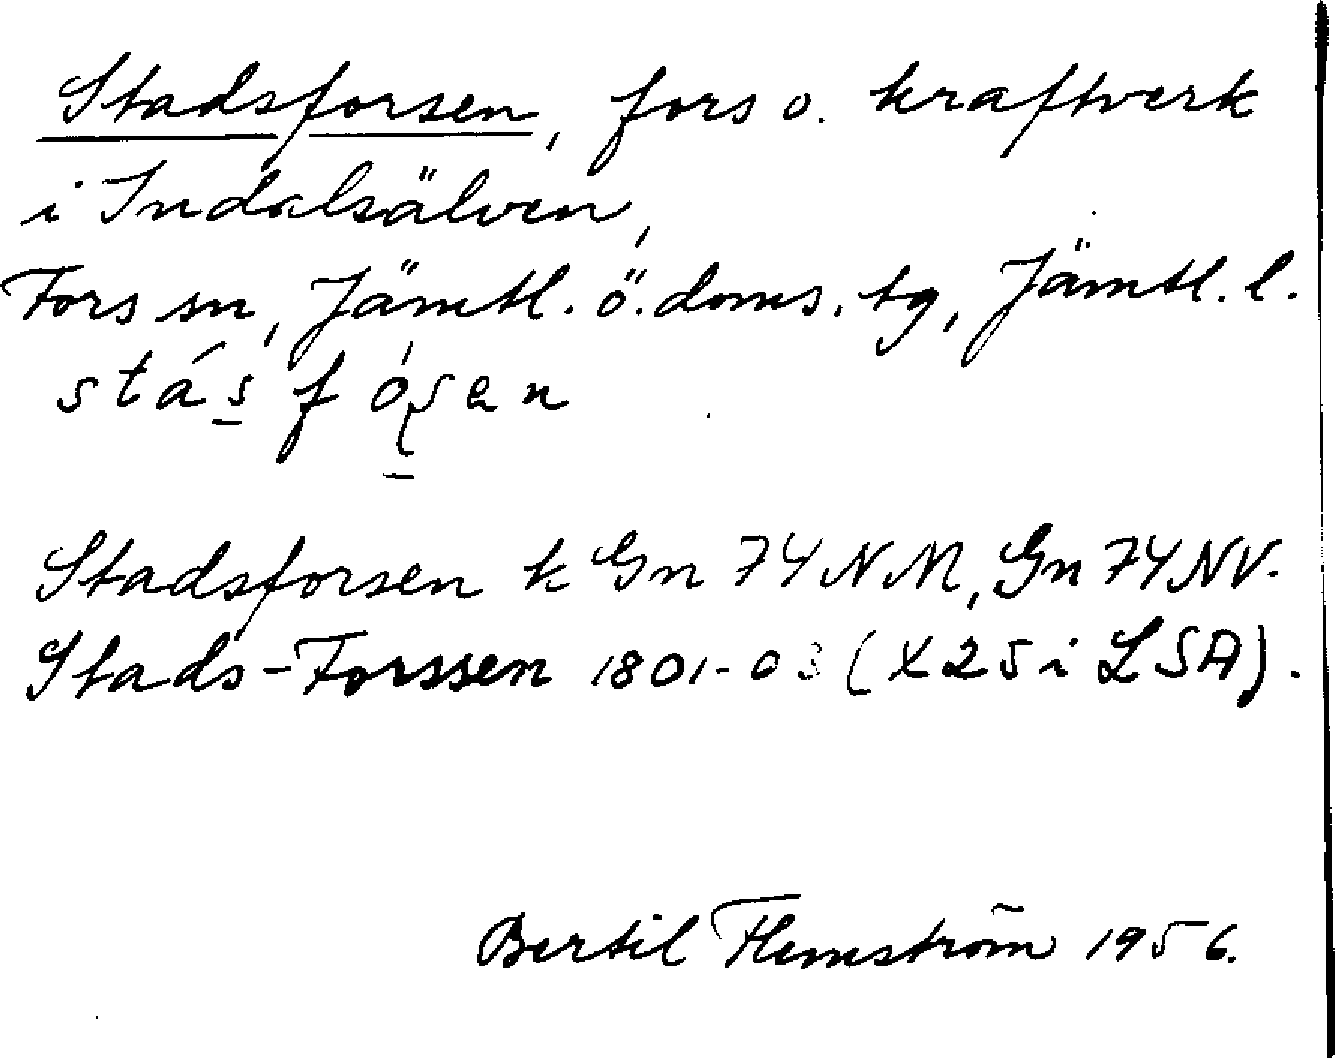 Stadsforsen, fors o. kraftverk
i Indalsälven,
Fors sn, Jämtl. ö. doms. tg, Jämtl. l.
stás fóʂen
Stadsforsen k Gn 74 NM, Gn 74 NV.
Stads-Forssen 1801-03 (X25 i LSA).
Bertil Flemström 1956.